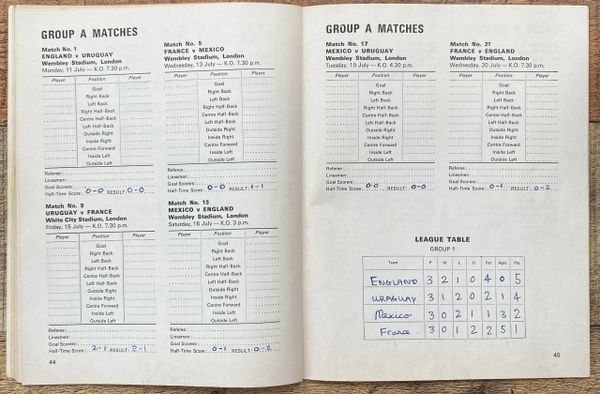 GROUP A MATCHES
Match No. 1
ENGLAND v URUGUAY
Wembley Stadium, London
Monday, 11 July — K.O. 7.30 p.m.
Player Position Player
Goal
Right Back
Left Back
Right Half-Back
Centre Half-Back
Left Half-Back
Outside Right
Inside Right
Centre Forward
Inside Left
Outside Left
Referee:
Linesmen:
Goal Scorers:
Half-Time Score: 0-0 RESULT: 0-0
Match No. 5
FRANCE v MEXICO
Wembley Stadium, London
Wednesday, 13 July — K.O. 7.30 p.m.
Player Position Player
Goal
Right Back
Left Back
Right Half-Back
Centre Half-Back
Left Half-Back
Outside Right
Inside Right
Centre Forward
Inside Left
Outside Left
Referee:
Linesmen:
Goal Scorers:
Half-Time Score: 0-0 RESULT: 1-1
Match No. 9
URUGUAY v FRANCE
White City Stadium, London
Friday, 15 July — K.O. 7.30 p.m.
Player Position Player
Goal
Right Back
Left Back
Right Half-Back
Centre Half-Back
Left Half-Back
Outside Right
Inside Right
Centre Forward
Inside Left
Outside Left
Referee:
Linesmen:
Goal Scorers:
Half-Time Score: 2-1 RESULT: 2-1
Match No. 13
MEXICO v ENGLAND
Wembley Stadium, London
Saturday, 16 July — K.O. 3 p.m.
Player Position Player
Goal
Right Back
Left Back
Right Half-Back
Centre Half-Back
Left Half-Back
Outside Right
Inside Right
Centre Forward
Inside Left
Outside Left
Referee:
Linesmen:
Goal Scorers:
Half-Time Score: 0-1 RESULT: 0-2
44
GROUP A MATCHES
Match No. 17
MEXICO v URUGUAY
Wembley Stadium, London
Tuesday, 19 July — K.O. 4.30 p.m.
Player Position Player
Goal
Right Back
Left Back
Right Half-Back
Centre Half-Back
Left Half-Back
Outside Right
Inside Right
Centre Forward
Inside Left
Outside Left
Referee:
Linesmen:
Goal Scorers:
Half-Time Score: 0-0 RESULT: 0-0
Match No. 21
FRANCE v ENGLAND
Wembley Stadium, London
Wednesday, 20 July — K.O. 7.30 p.m.
Player Position Player
Goal
Right Back
Left Back
Right Half-Back
Centre Half-Back
Left Half-Back
Outside Right
Inside Right
Centre Forward
Inside Left
Outside Left
Referee:
Linesmen:
Goal Scorers:
Half-Time Score: 0-1 RESULT: 0-2
LEAGUE TABLE
GROUP 1
Team P W L D For Agst. Pts.
ENGLAND 3 2 1 0 4 0 5
URAGUAY 3 1 2 0 2 1 4
Mexico 3 0 2 1 1 3 2
France 3 0 1 2 2 5 1
45